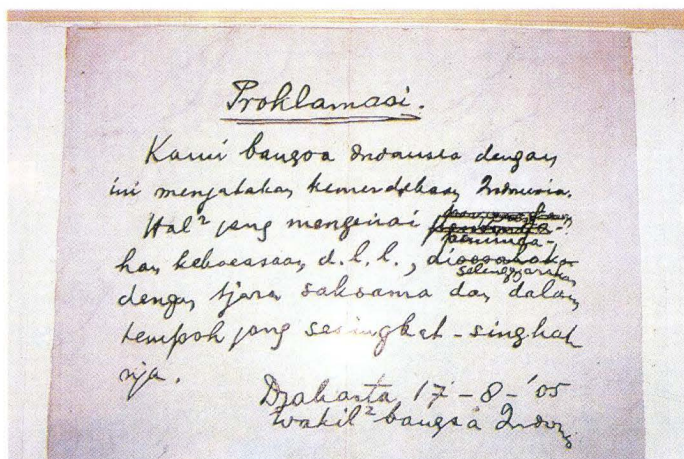 Proklamasi.
Kami bangsa Indonesia dengan
ini menjatakan kemerdekaan Indonesia.
Hal² jang mengenai
peminda-
han kekoeasaan, d.l.l.,
selenggarakan
dengan tjara saksama dan dalam
tempoh jang sesingkat-singkat
nja.
Djakarta, 17-8-'05
Wakil² bangsa Indonesia